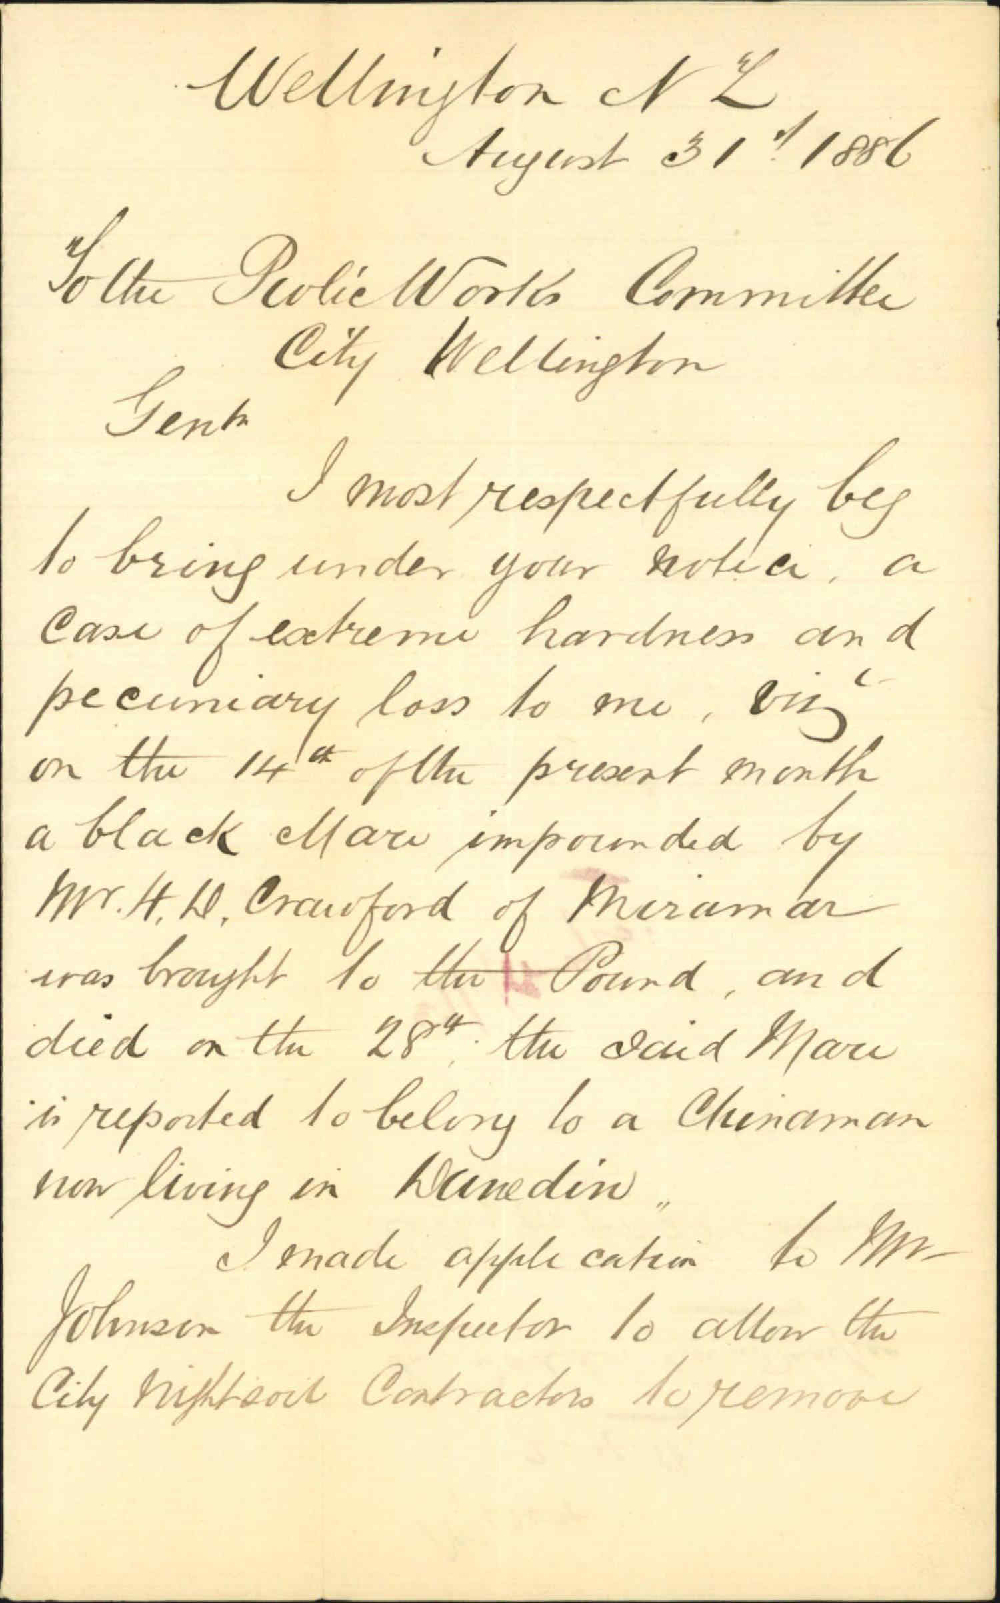 Wellington N Z
August 31st 1886
To the Public Works Committee
City Wellington
Gentn
I most respectfully beg
to bring under your notice, a
Case of extreme hardness and
pecuniary loss to me, viz
on the 14th of the present month
a black Mare impounded by
Mr. H. D. Crawford of Miramar
was brought to the Pound, and
died on the 28th. the said Mare
is reported to belong to a Chinaman
now living in Dunedin,,
I made application to Mr
Johnson the Inspector to allow the
City Nightsoil Contractors to remove